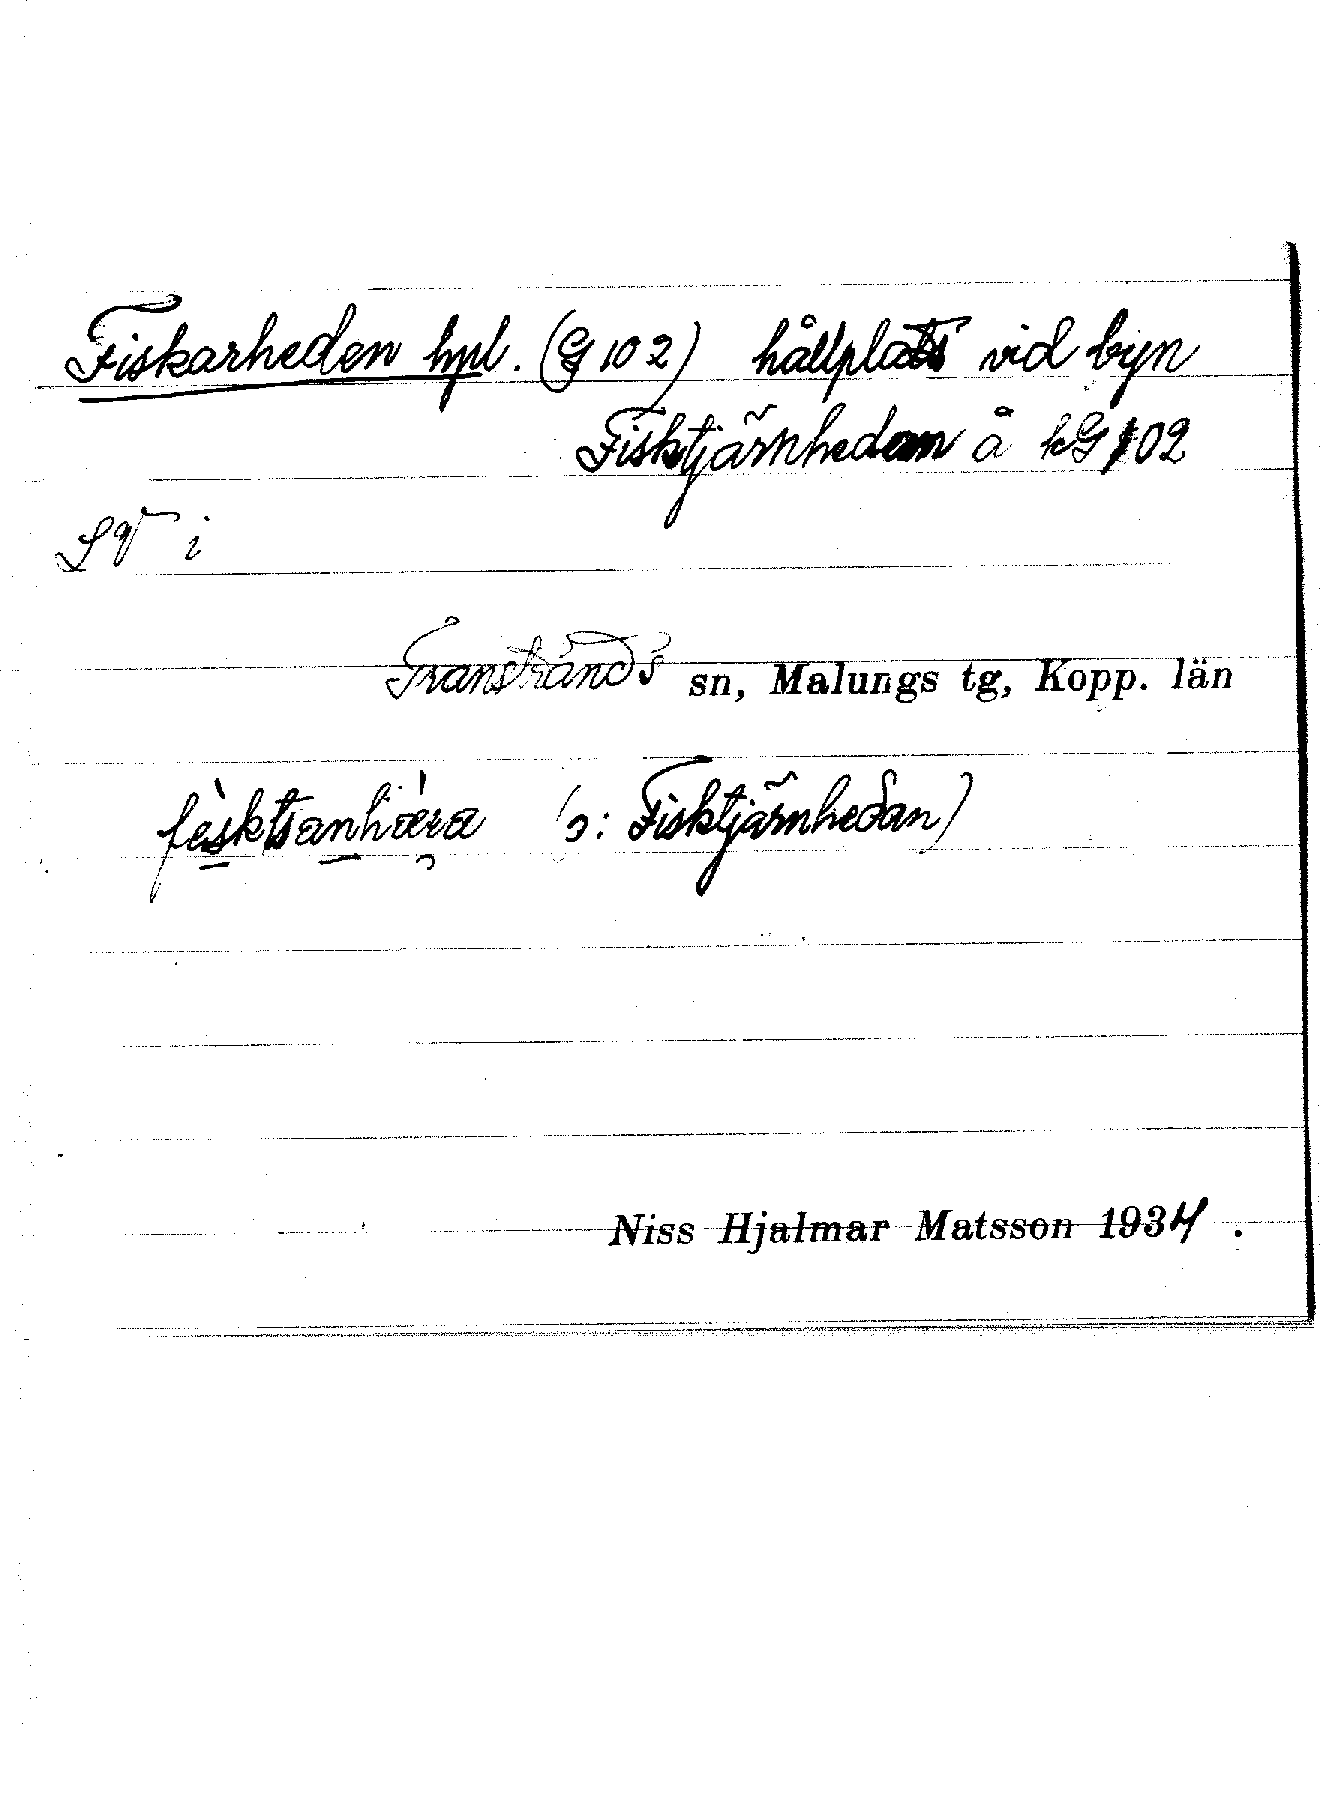 Fiskarheden hpl. (G 102) hållplats vid byn
Fisktjärnhedan å kG 102
SV i
Transtrands sn, Malungs tg, Kopp. län
(ɔ: Fisktjärnhedan)
Niss Hjalmar Matsson 1934.